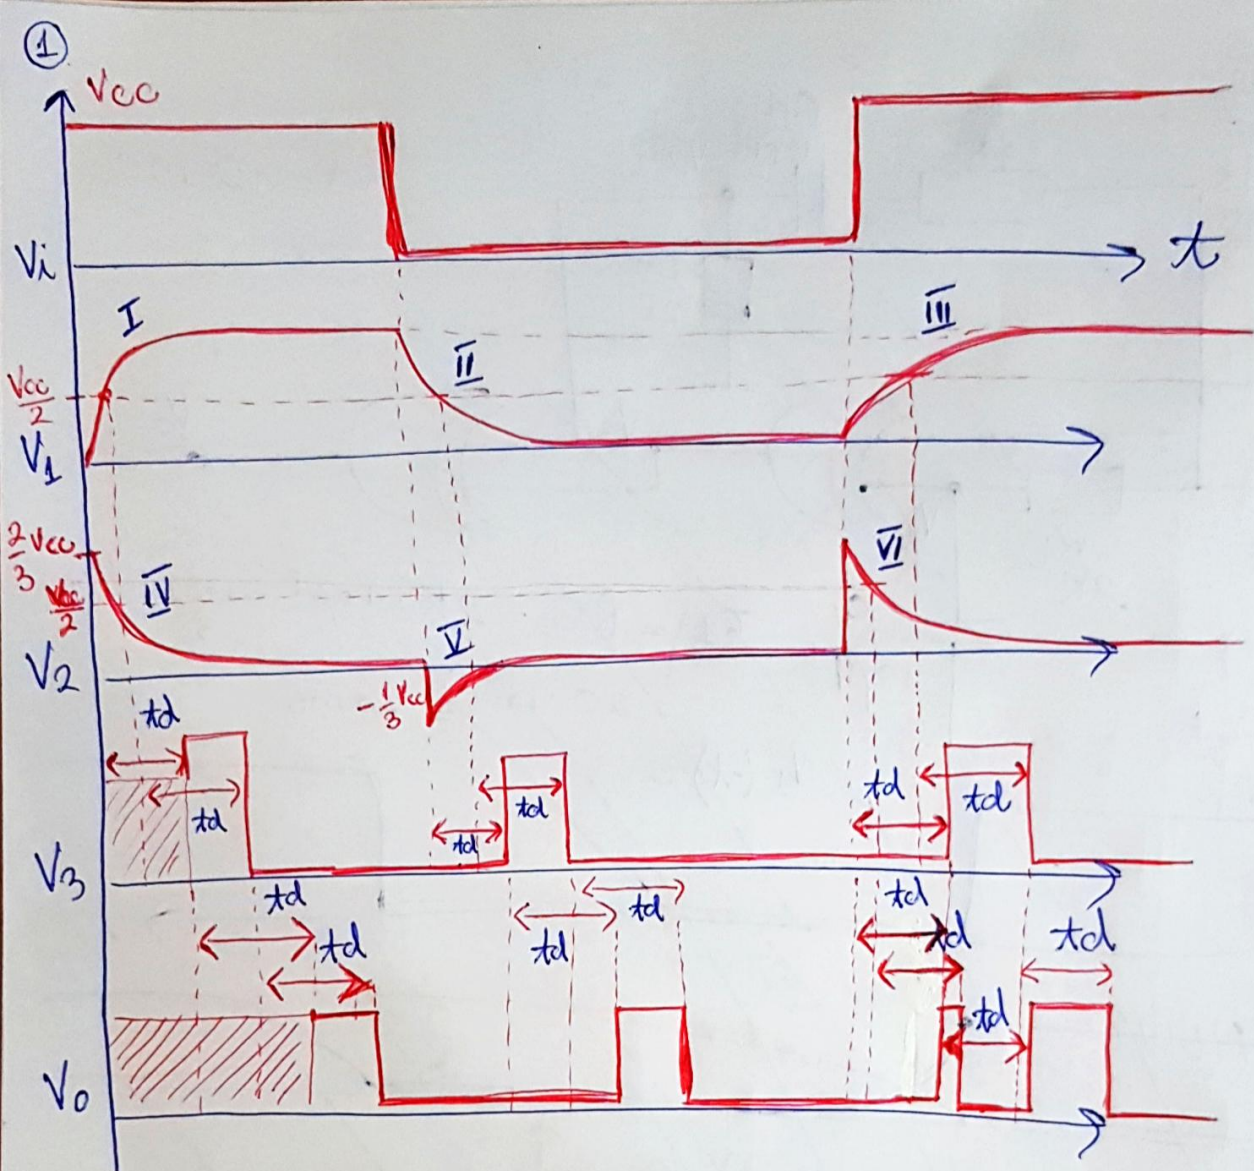 1
Vcc
Vi
t
I
II
III
Vcc/2
V1
2/3 Vcc
Vcc/2
IV
V
VI
V2
-1/3 Vcc
td
td
td
td
td
td
V3
td
td
td
td
td
td
td
td
V0